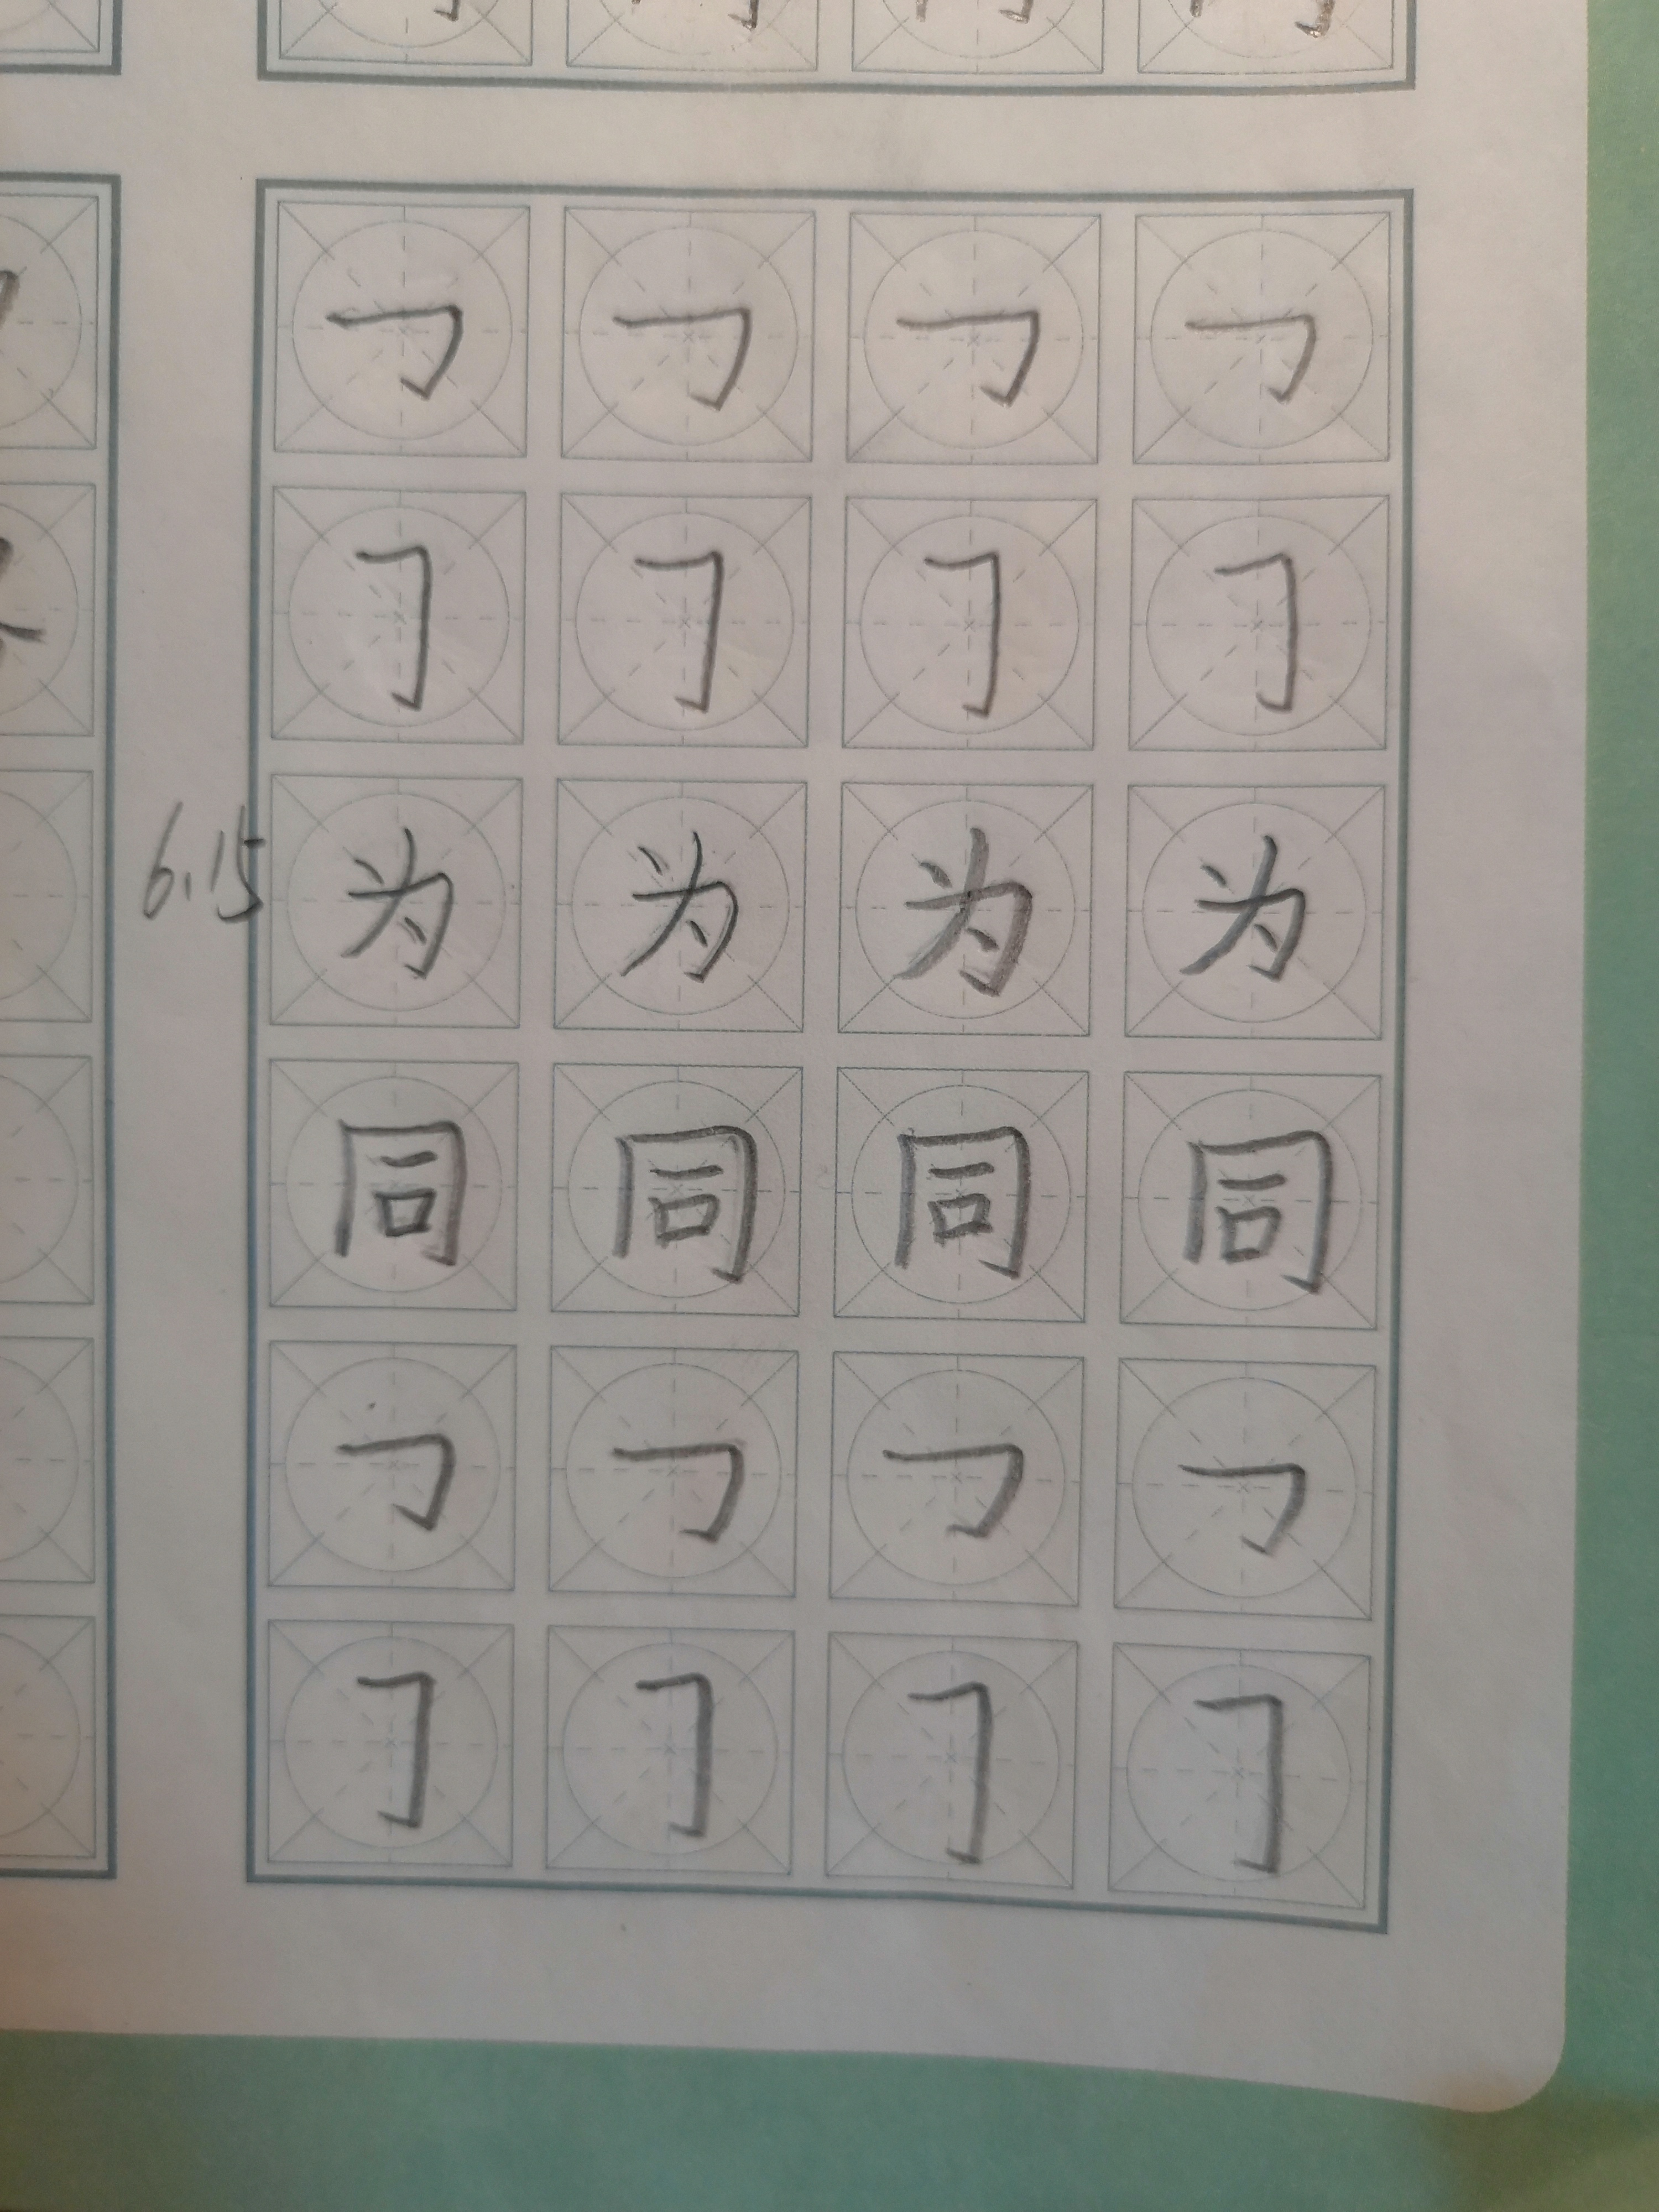 𠃌 𠃌 𠃌 𠃌
𠃌 𠃌 𠃌 𠃌
6.15 为 为 为 为
同 同 同 同
𠃌 𠃌 𠃌 𠃌
𠃌 𠃌 𠃌 𠃌